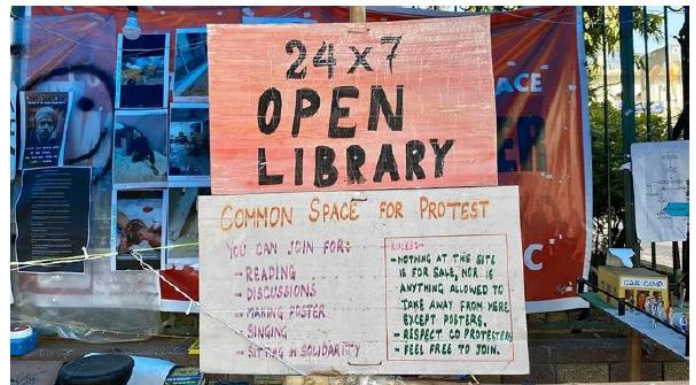 24x7
OPEN
LIBRARY
COMMON SPACE FOR PROTEST
YOU CAN JOIN FOR:
→ READING
→ DISCUSSIONS
→ MAKING POSTER
→ SINGING
→ SITTING IN SOLIDARITY
RULES:-
- NOTHING AT THIS SITE
IS FOR SALE, NOR IS
ANYTHING ALLOWED TO
TAKE AWAY FROM HERE
EXCEPT POSTERS.
- RESPECT CO PROTESTERS
- FEEL FREE TO JOIN.
ACE
ER
C